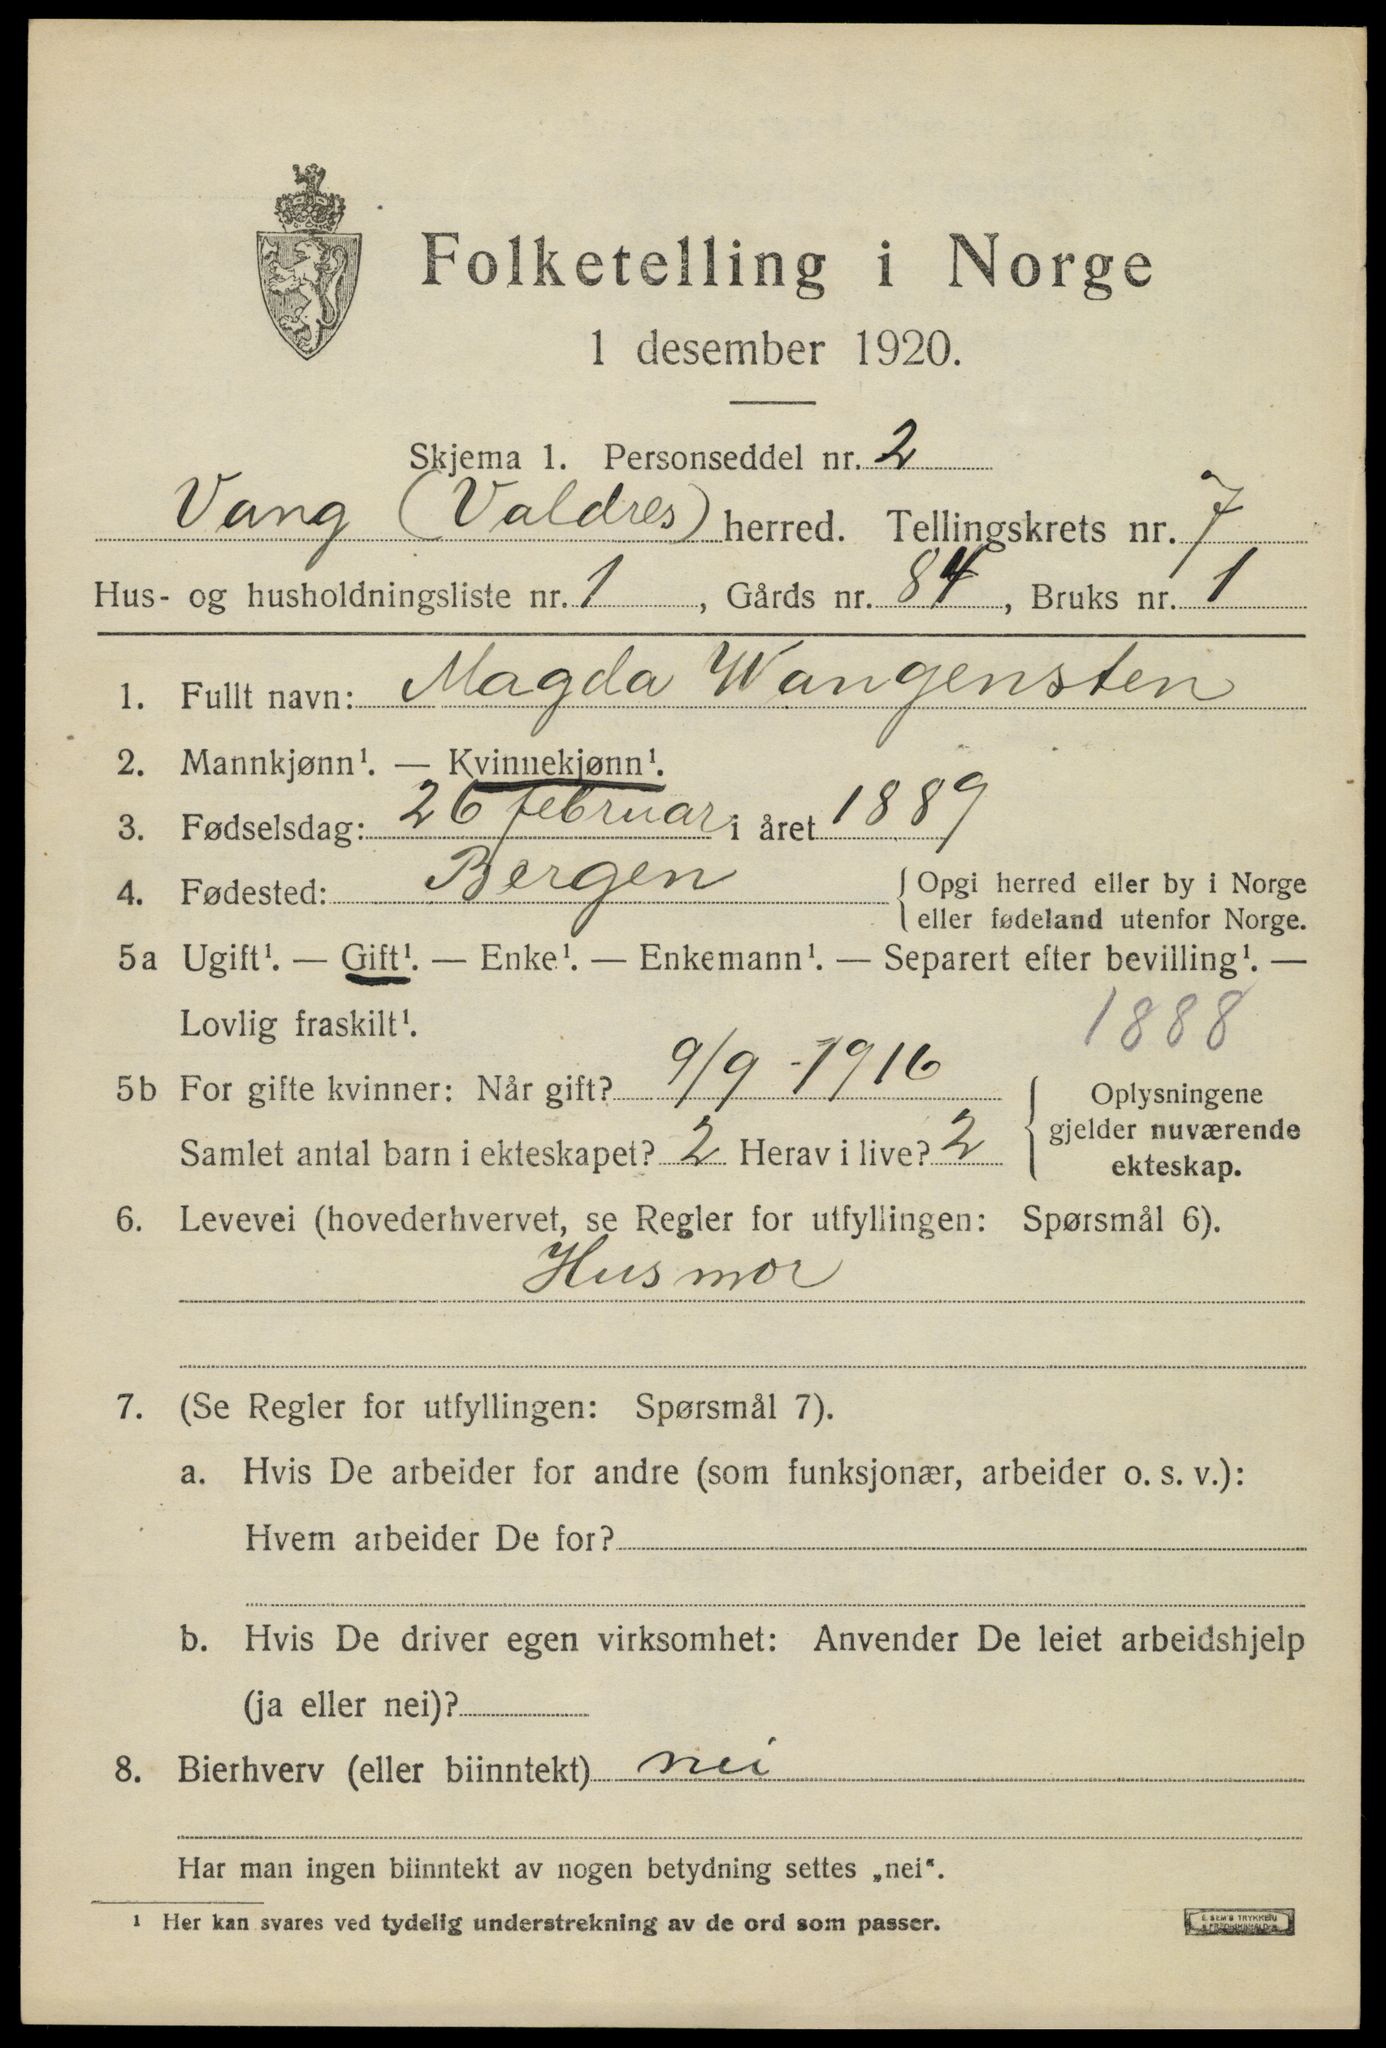 Folketelling i Norge
1 desember 1920.
Skjema 1. Personseddel nr. 2
Vang (Valdres) herred. Tellingskrets nr. 7
Hus- og husholdningsliste nr. 1, Gårds nr. 84, Bruks nr. 1
1. Fullt navn: Magda Wangensten
2. Mannkjønn¹. — Kvinnekjønn¹.
3. Fødselsdag: 26 februar i året 1889
4. Fødested: Bergen { Opgi herred eller by i Norge
eller fødeland utenfor Norge.
5a Ugift¹. — Gift¹. — Enke¹. — Enkemann¹. — Separert efter bevilling¹. —
Lovlig fraskilt¹. 1888
5b For gifte kvinner: Når gift? 9/9 - 1916 { Oplysningene
gjelder nuværende
Samlet antal barn i ekteskapet? 2 Herav i live? 2
ekteskap.
6. Levevei (hovederhvervet, se Regler for utfyllingen: Spørsmål 6).
Husmor
7. (Se Regler for utfyllingen: Spørsmål 7).
a. Hvis De arbeider for andre (som funksjonær, arbeider o. s. v.):
Hvem arbeider De for?
b. Hvis De driver egen virksomhet: Anvender De leiet arbeidshjelp
(ja eller nei)?
8. Bierhverv (eller biinntekt) nei
Har man ingen biinntekt av nogen betydning settes „nei“.
¹ Her kan svares ved tydelig understrekning av de ord som passer.
E. SEM'S TRYKKERI